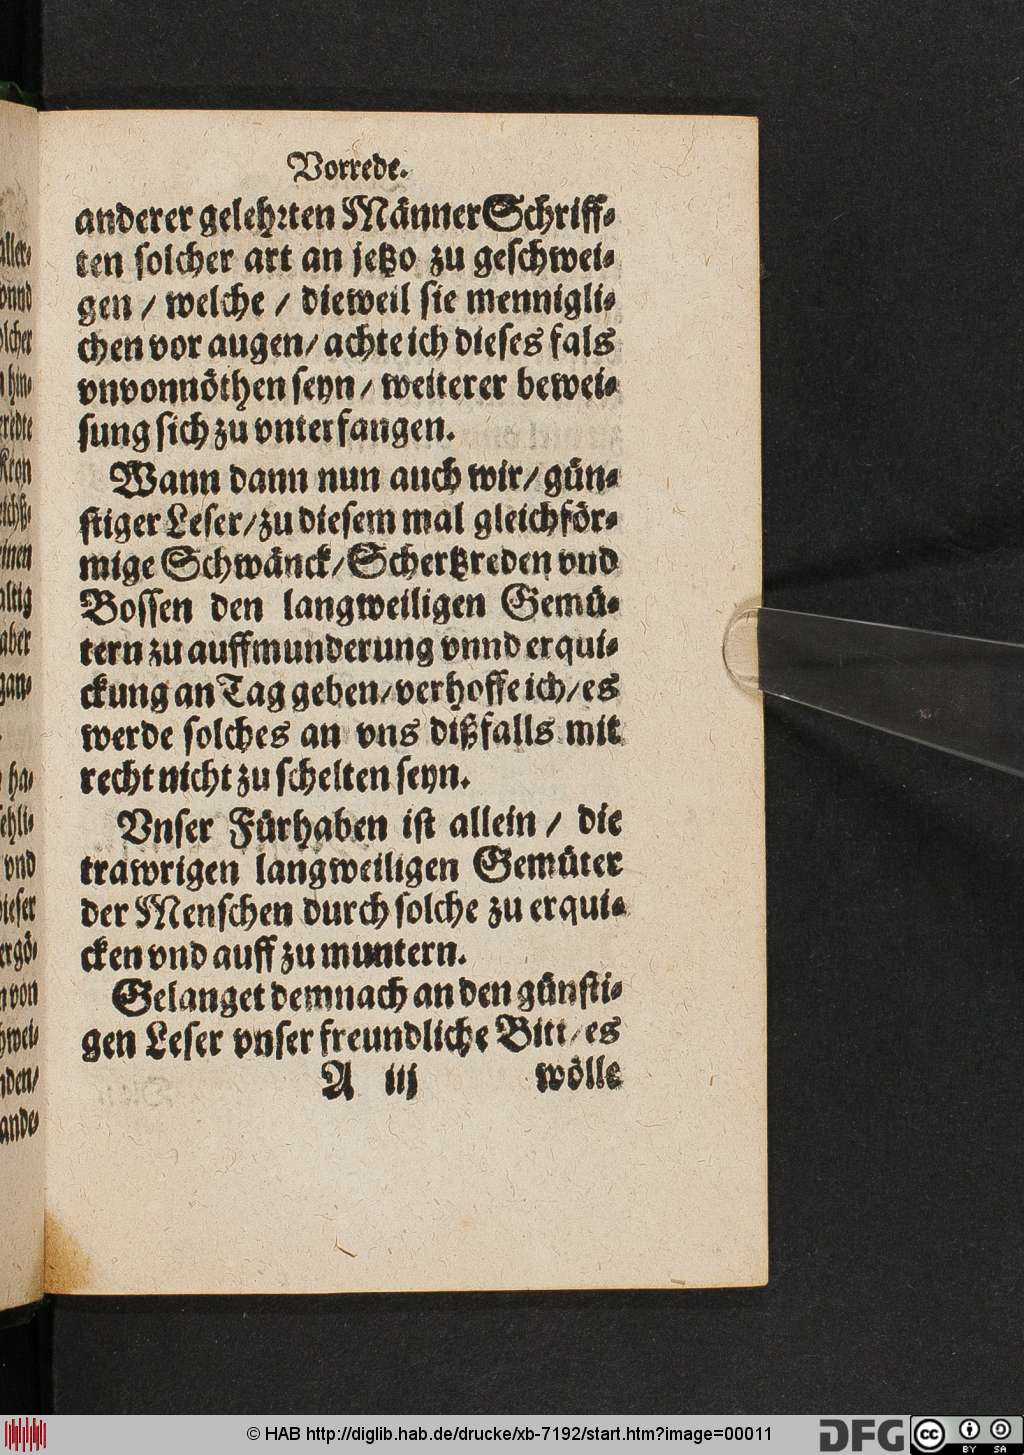 Vorrede.
anderer gelehrten Männer Schriff-
ten solcher art an jetzo zu geschwei-
gen / welche / dieweil sie mennigli-
chen vor augen / achte ich dieses fals
vnvonnöthen seyn / weiterer bewei-
sung sich zu vnterfangen.
Wann dann nun auch wir / gün-
stiger Leser / zu diesem mal gleichför-
mige Schwänck / Schertzreden vnd
Bossen den langweiligen Gemü-
tern zu auffmunderung vnnd erqui-
ckung an Tag geben / verhoffe ich / es
werde solches an vns dißfalls mit
recht nicht zu schelten seyn.
Vnser Fürhaben ist allein / die
trawrigen langweiligen Gemüter
der Menschen durch solche zu erqui-
cken vnd auff zu muntern.
Gelanget demnach an den günsti-
gen Leser vnser freundliche Bitt / es
A iij wölle
© HAB http://diglib.hab.de/drucke/xb-7192/start.htm?image=00011
DFG
cc
BY SA